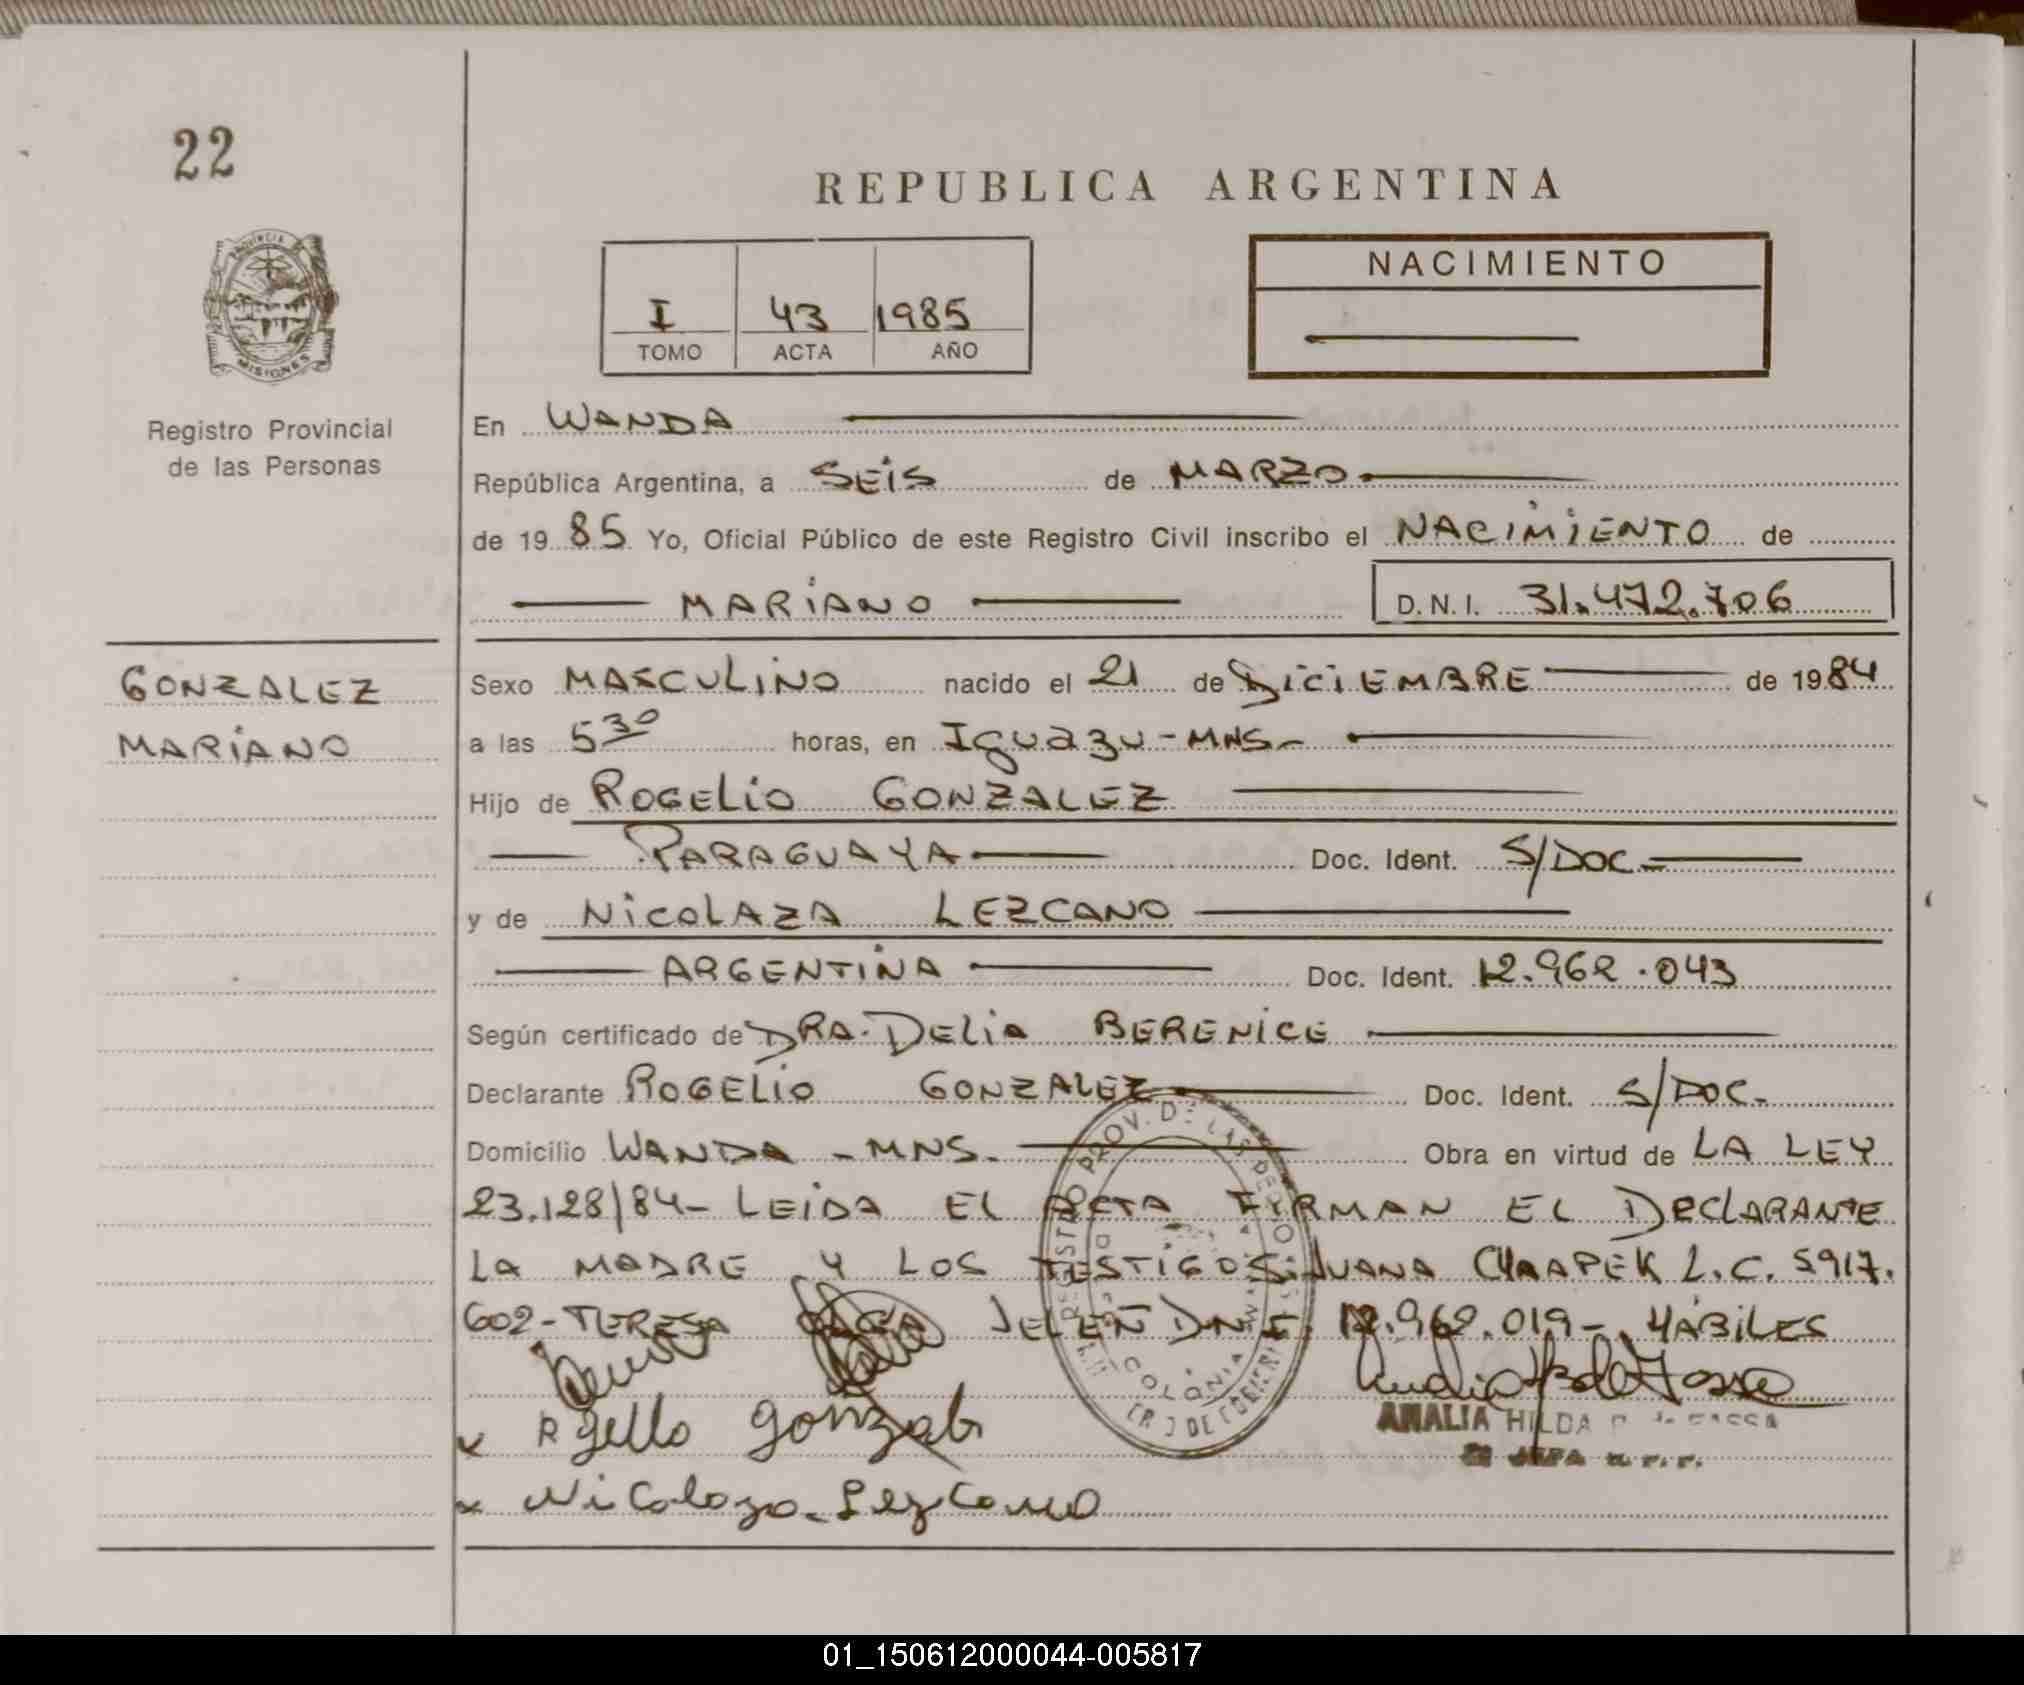 22
REPUBLICA ARGENTINA
PROVINCIA
MISIONES
Registro Provincial
de las Personas
I 43 1985
TOMO ACTA AÑO
NACIMIENTO
En WANDA
República Argentina, a SEIS de MARZO
de 19 85 Yo, Oficial Público de este Registro Civil inscribo el NACIMIENTO de
MARIANO D.N.I. 31.472.706
GONZALEZ
MARIANO
Sexo MASCULINO nacido el 21 de DICIEMBRE de 1984
a las 5 30 horas, en Iguazu - MNS-
Hijo de ROGELIO GONZALEZ
PARAGUAYA Doc. Ident. S/DOC.
y de NICOLAZA LEZCANO
ARGENTINA Doc. Ident. 12.962.043
Según certificado de DRA. DELIA BERENICE
Declarante ROGELIO GONZALEZ Doc. Ident. S/DOC.
Domicilio WANDA - MNS. Obra en virtud de LA LEY
23.128/84- LEIDA EL ACTA FIRMAN EL DECLARANTE
LA MADRE Y LOS TESTIGOS: JUANA CHAAPEK L.C. 5917.
602- TERESA JELEÑ DNI. 12.962.019- HÁBILES
REGISTRO PROV. DE LAS PERSONAS
COLONIA WANDA
ANALIA HILDA
JEFA
Gonzalez
Nicolaza Lezcano
01_150612000044-005817